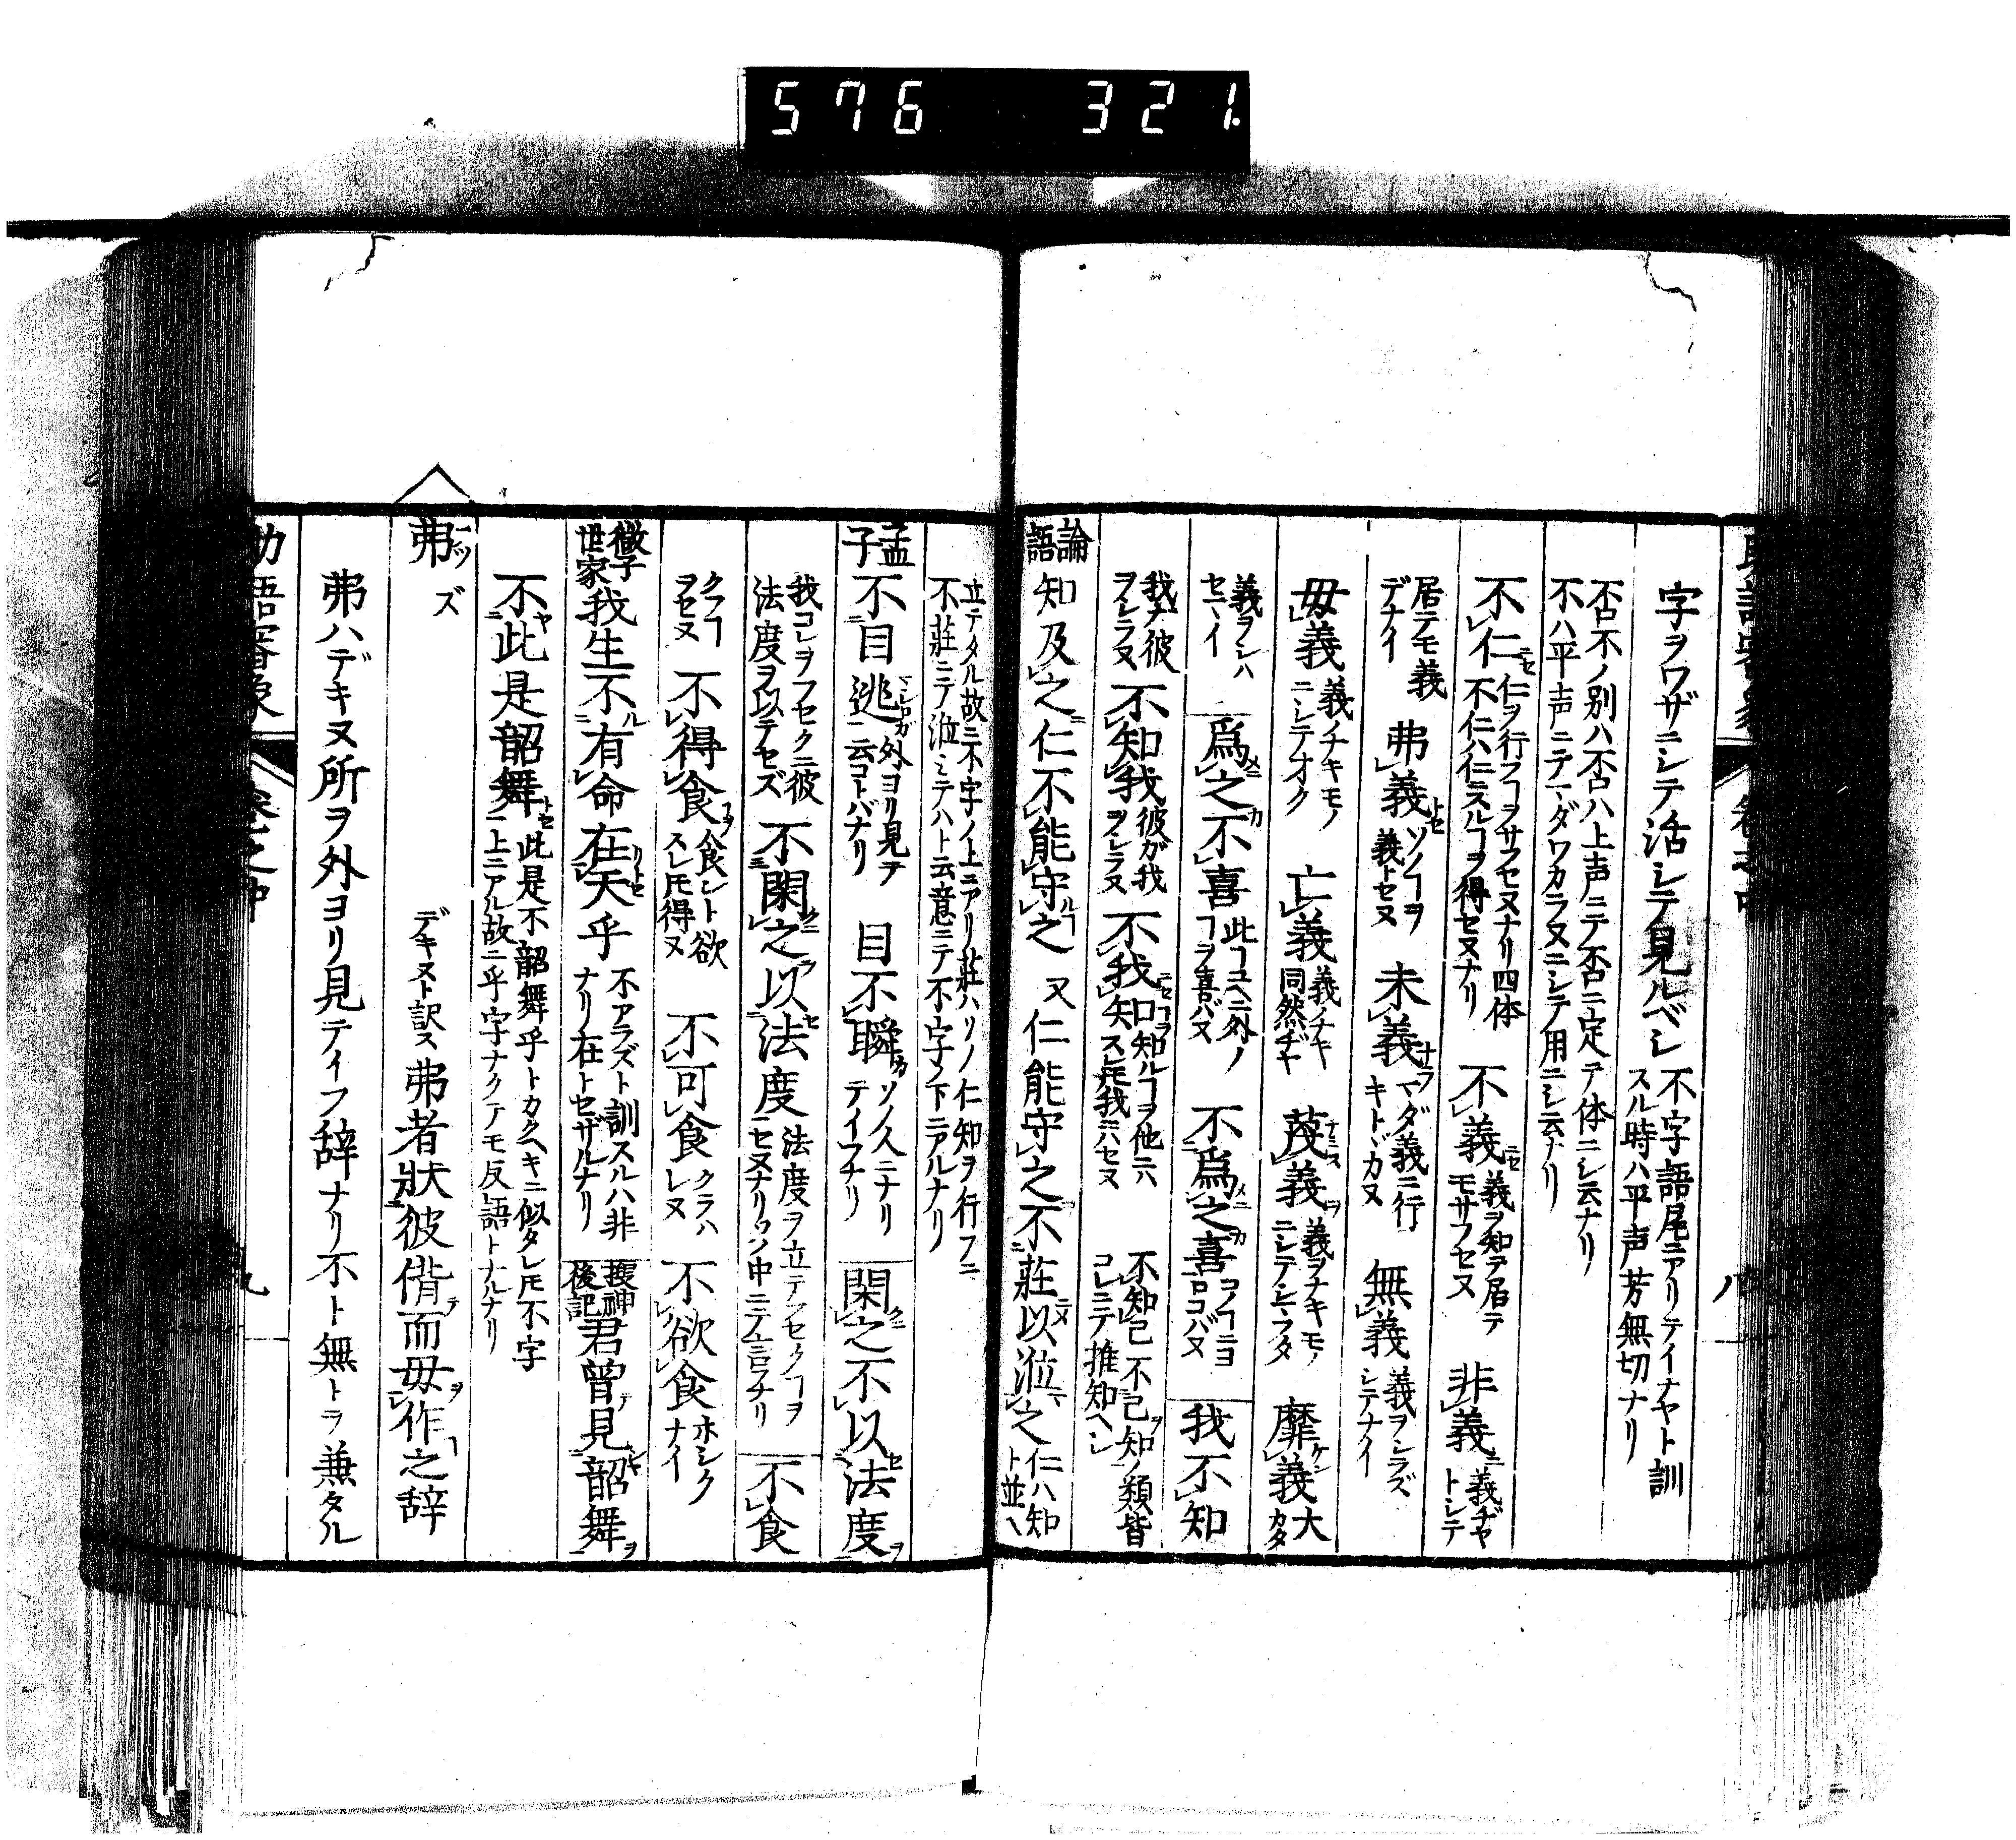 576 321
字ヲワザニシテ活シテ見ルベシ 不字語尾ニアリテイナヤト訓スル時ハ平声芳無切ナリ
否不ノ別ハ不否ハ上声ニテ否ニ定テ体ニシ云ナリ
不ハ平声ニテマダワカラヌニシテ用ニシ云ナリ
不仁 仁ヲ行フヿヲサフセヌナリ四体不仁ハ仁ニスルヿヲ得セヌナリ 不義 義ヲ知テ居テモサフセヌ 非義 義ヂヤトシテ
居テモ義デナイ 弗義 ソノヿヲ義トセヌ 未義 マダ義ニ行キトヾカヌ 無義 義ヲシラズシテナイ
毋義 義ノナキモノニシテオク 亡義 義ノナキ同然ヂヤ 蔑義 義ヲナキモノニシテシマフタ 靡義 大カタ
義ヲシハセマイ 爲之不喜 此ヿユヘニ外ノヿヲ喜バヌ 不爲之喜 コノヿニヨロコバヌ 我不知
我ナ彼ヲシラヌ 不知我 彼ガ我ヲシラヌ 不我知 口知ルヿヲ他ニハスレ𪜈我ニハセヌ 不知己不己知ノ類皆コレニテ推知ヘシ
論語 知及之仁不能守之 又仁能守之不莊以涖之 仁ハ知ト並ヘ
立テタル故ニ不字ノ上ニアリ莊ハソノ仁知ヲ行フニ
不莊ニテ涖ミテハト云意ニテ不字ノ下ニアルナリ
孟子 不目逃 外ヨリ見テ云コトバナリ 目不瞬 ソノ人ニナリテイフナリ 閑之不以法度
我コレヲフセクニ彼法度ヲ以テセズ 不閑之以法度 法度ヲ立テフセクヿヲセヌナリワノ中ニテ言フナリ 不食
クフヿヲセヌ 不得食 食シト欲スレ𪜈得ヌ 不可食 クラハレヌ 不欲食 ホシクナイ
微子世家 我生不有命在天乎 不アラズト訓スルハ非ナリ在トセザルナリ 捜神後記 君曾見韶舞
不此是韶舞 此是不韶舞乎トカクヘキニ似タレ𪜈不字上ニアル故ニ乎字ナクテモ反語トナルナリ
弗 ズ デキヌト訳ス 弗者狀彼偝而毋作之辞
弗ハデキヌ所ヲ外ヨリ見テイフ辞ナリ不ト無トヲ兼タル